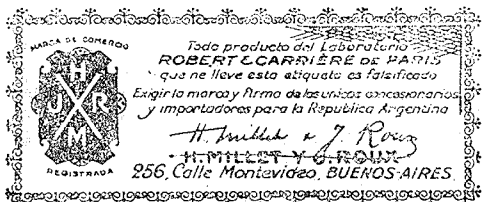 MARCA DE COMERCIO
H
U R
M
REGISTRADA
Todo producto del Laboratorio
ROBERT & CARRIÈRE DE PARIS
que no lleve esta etiqueta es falsificado
Exigir la marca y firma de los unicos concesionarios
y importadores para la Republica Argentina
H. Millet & J. Roux
H. MILLET Y J. ROUX
256, Calle Montevideo, BUENOS-AIRES